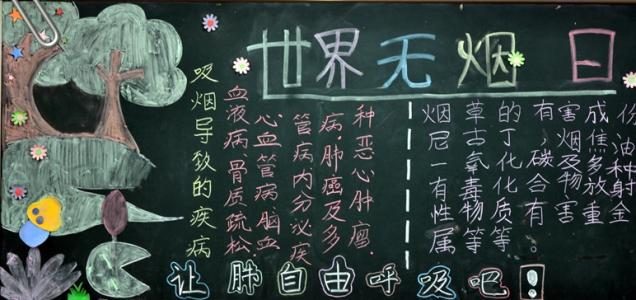 世界无烟日
吸烟导致的疾病
血液病.骨质疏松
心血管病脑血
管病内分泌疾
病.肺癌及多
种恶心肿瘤.
烟草的有害成份
尼古丁,烟焦油
一氧化碳及多种
有毒化合物放射
性物质有害重金
属等等。
让肺自由呼吸吧!